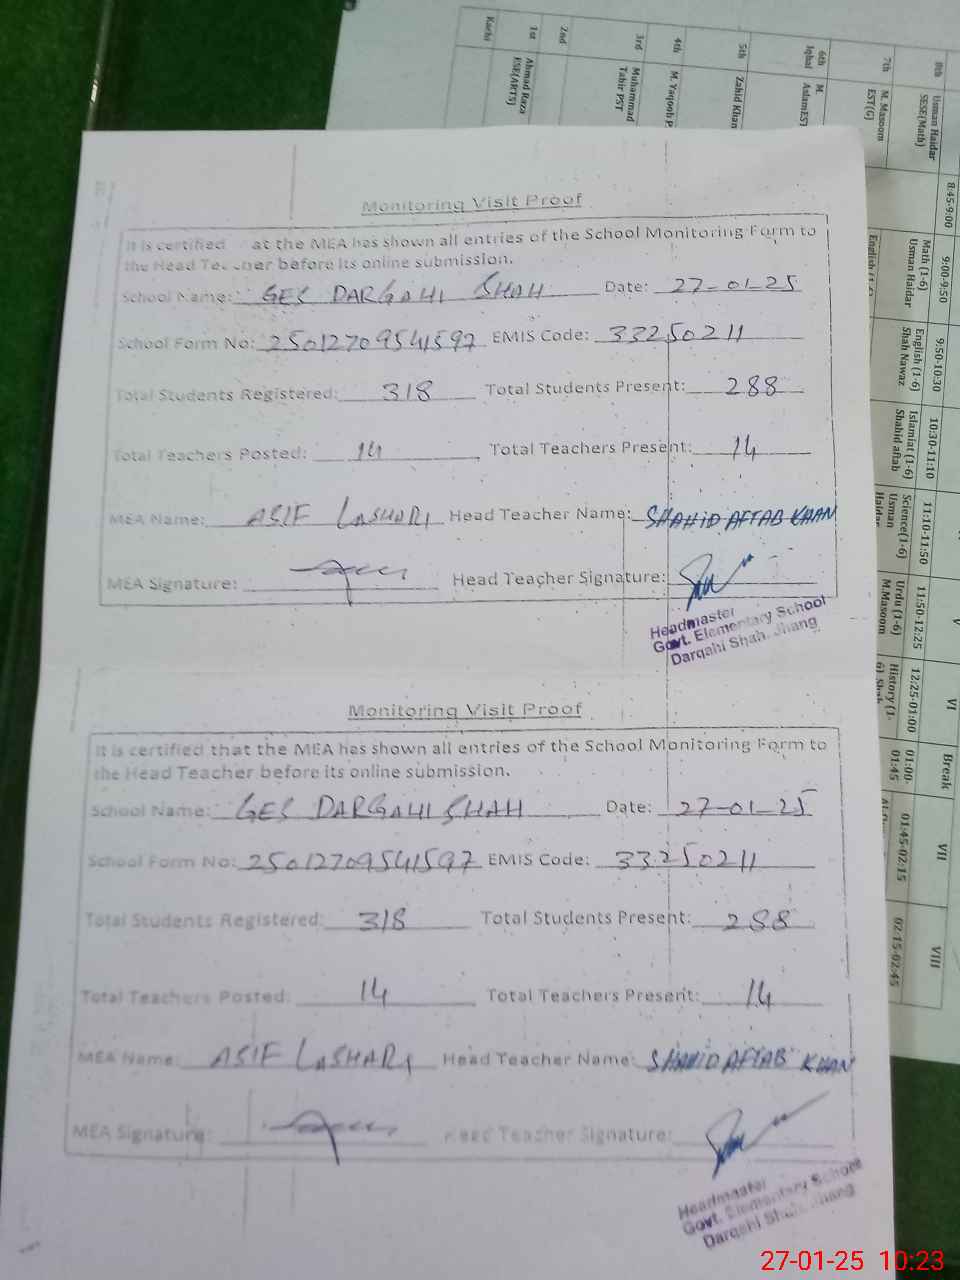 Monitoring Visit Proof
It is certified at the MEA has shown all entries of the School Monitoring Form to
the Head Teacher before its online submission.
School Name: GES DARGAHI SHAH Date: 27-01-25
School Form No: 25012709541597 EMIS Code: 33250211
Total Students Registered: 318 Total Students Present: 288
Total Teachers Posted: 14 Total Teachers Present: 14
MEA Name: ASIF LASHARI Head Teacher Name: SHAHID AFTAB KHAN
MEA Signature: Head Teacher Signature:
Headmaster
Govt. Elementary School
Darqahi Shah. Jhang
Monitoring Visit Proof
It is certified that the MEA has shown all entries of the School Monitoring Form to
the Head Teacher before its online submission.
School Name: GES DARGAHI SHAH Date: 27-01-25
School Form No: 25012709541597 EMIS Code: 33250211
Total Students Registered: 318 Total Students Present: 288
Total Teachers Posted: 14 Total Teachers Present: 14
MEA Name: ASIF LASHARI Head Teacher Name: SHAHID AFTAB KHAN
MEA Signature: Head Teacher Signature:
Headmaster
Govt. Elementary School
Darqahi Shah. Jhang
8:45-9:00
9:00-9:50
9:50-10:30
10:30-11:10
11:10-11:50
11:50-12:25
12:25-01:00
01:00-
01:45
01:45-02:15
02:15-02:45
V
VI
Break
VII
VIII
8th
Usman Haidar
SESE(Math)
Math (1-6)
Usman Haidar
English (1-6)
Shah Nawaz
Islamiat (1-6)
Shahid aftab
Science(1-6)
Usman
Haidar
Urdu (1-6)
M.Masoom
History (1-
6) Shah
7th
M. Masoom
EST(G)
6th
M.
Iqbal
AslamEST
5th
Zahid Khan
4th
M. Yaqoob P
3rd
Muhammad
Tahir PST
2nd
1st
Ahmad Raza
ESE(ARTS)
Kachi
27-01-25 10:23